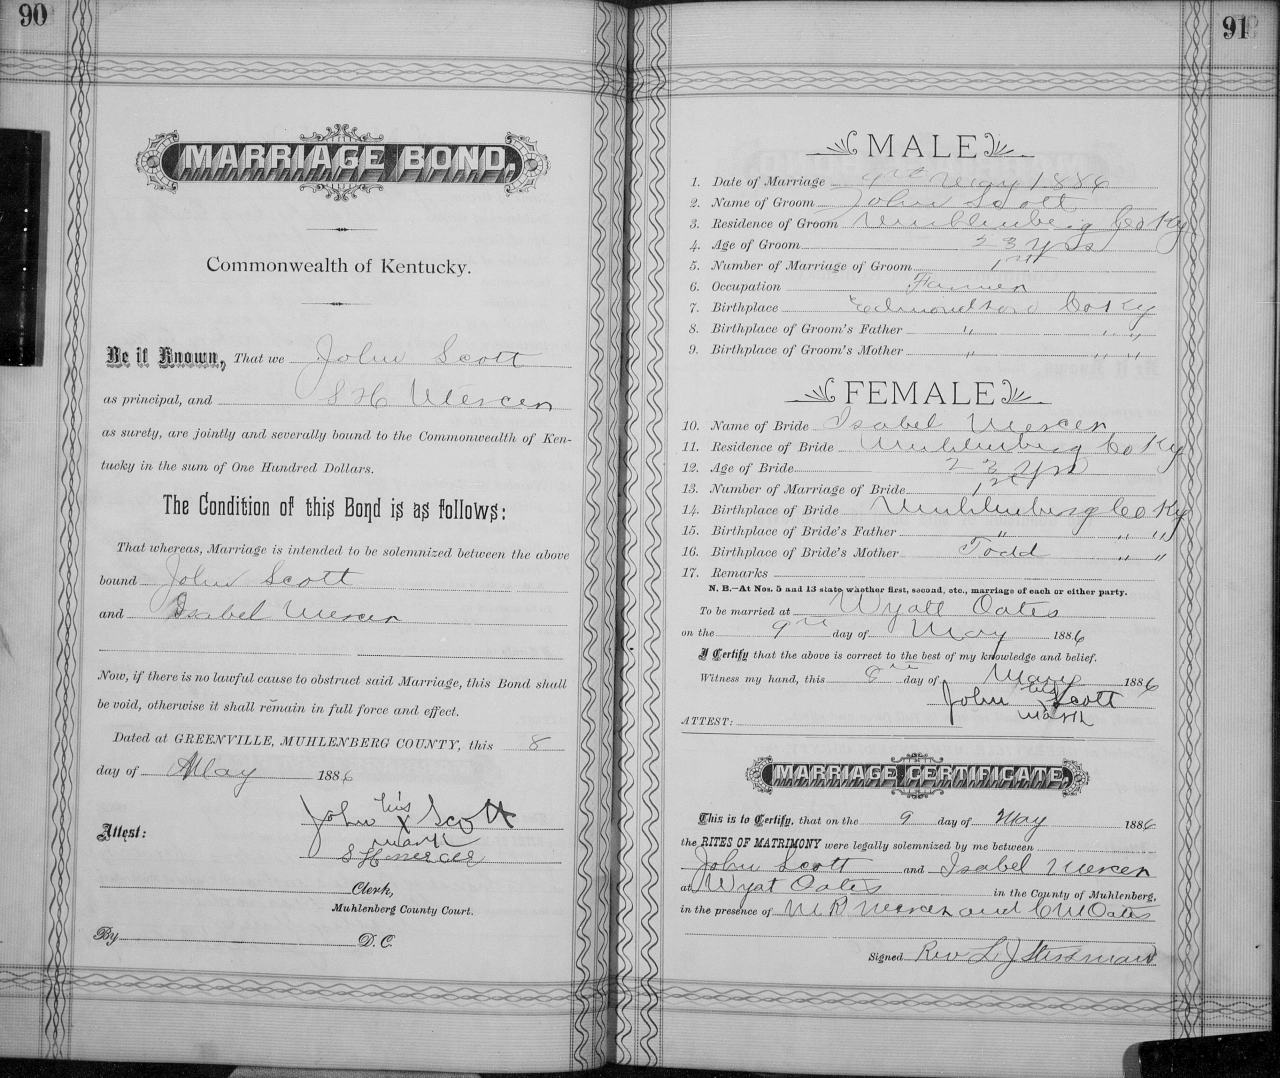 90
MARRIAGE BOND.
Commonwealth of Kentucky.
Be it Known, That we John Scott
as principal, and S H Mercer
as surety, are jointly and severally bound to the Commonwealth of Ken-
tucky in the sum of One Hundred Dollars.
The Condition of this Bond is as follows:
That whereas, Marriage is intended to be solemnized between the above
bound John Scott
and Isabel Mercer
Now, if there is no lawful cause to obstruct said Marriage, this Bond shall
be void, otherwise it shall remain in full force and effect.
Dated at GREENVILLE, MUHLENBERG COUNTY, this 8
day of May 1886
John his X mark Scott
Attest:
S H Mercer
Clerk,
Muhlenberg County Court.
By D. C.
91
MALE
1. Date of Marriage May 1886
2. Name of Groom John Scott
3. Residence of Groom Muhlenberg Co Ky
4. Age of Groom 23 yrs
5. Number of Marriage of Groom 1st
6. Occupation Farmer
7. Birthplace Edmondson Co Ky
8. Birthplace of Groom's Father " " "
9. Birthplace of Groom's Mother " " "
FEMALE
10. Name of Bride Isabel Mercer
11. Residence of Bride Muhlenberg Co Ky
12. Age of Bride 23 yrs
13. Number of Marriage of Bride 1st
14. Birthplace of Bride Muhlenberg Co Ky
15. Birthplace of Bride's Father " " "
16. Birthplace of Bride's Mother Todd " "
17. Remarks
N. B.—At Nos. 5 and 13 state whether first, second, etc., marriage of each or either party.
To be married at Wyatt Oates
on the 9th day of May 1886
I Certify that the above is correct to the best of my knowledge and belief.
Witness my hand, this 8th day of May 1886
John his X mark Scott
ATTEST:
MARRIAGE CERTIFICATE.
This is to Certify, that on the 9 day of May 1886
the RITES OF MATRIMONY were legally solemnized by me between
John Scott and Isabel Mercer
at Wyat Oates in the County of Muhlenberg,
in the presence of M R Mercer and C W Oates
Signed Rev L J